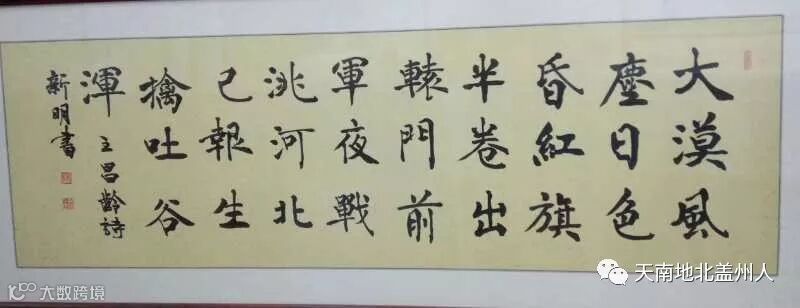 大漠風
塵日色
昏紅旗
半卷出
轅門前
軍夜戰
洮河北
已報生
擒吐谷
渾
王昌齡詩
新明書
天南地北盖州人
大数跨境